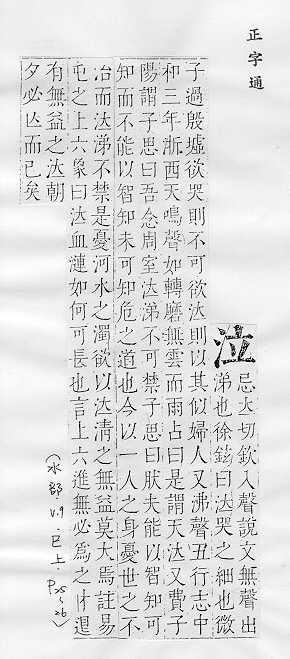 正字通
泣
忌立切欽入聲說文無聲出
涕也徐鉉曰泣哭之細也微
子過殷墟欲哭則不可欲泣則以其似婦人又沸聲丑行志中
和三年浙西天鳴聲如轉磨無雲而雨占曰是謂天泣又費子
陽謂子思曰吾念周室泣涕不可禁子思曰狀夫能以智知可
知而不能以智知未可知危之道也今以一人之身憂世之不
治而泣涕不禁是憂河水之濁欲以泣清之無益莫大焉註易
屯之上六象曰泣血漣如何可長也言上六進無必為之才退
有無益之泣朝
夕必亾而已矣
(水部.V.9.巳上.P25-26)